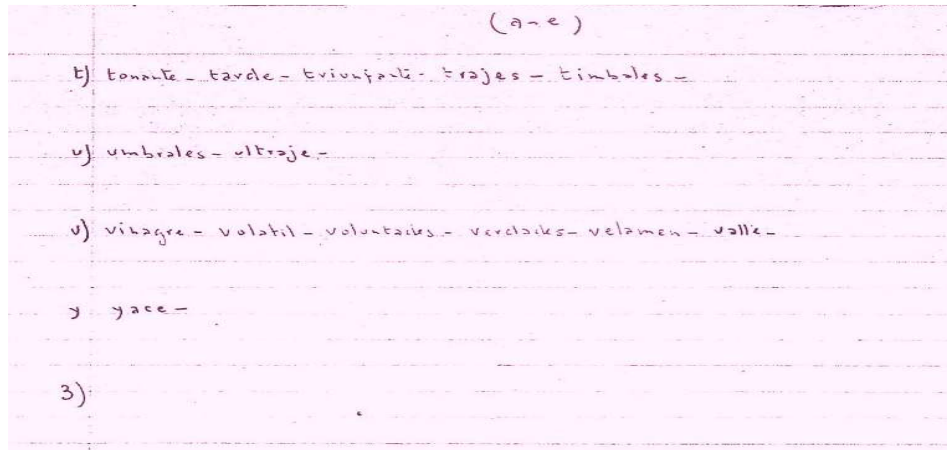 (a-e)
t) tonante - tarde - triunfante - trajes - timbales -
u) umbrales - ultraje -
v) vinagre - volatil - voluntades - verdades - velamen - valle -
y yace -
3)